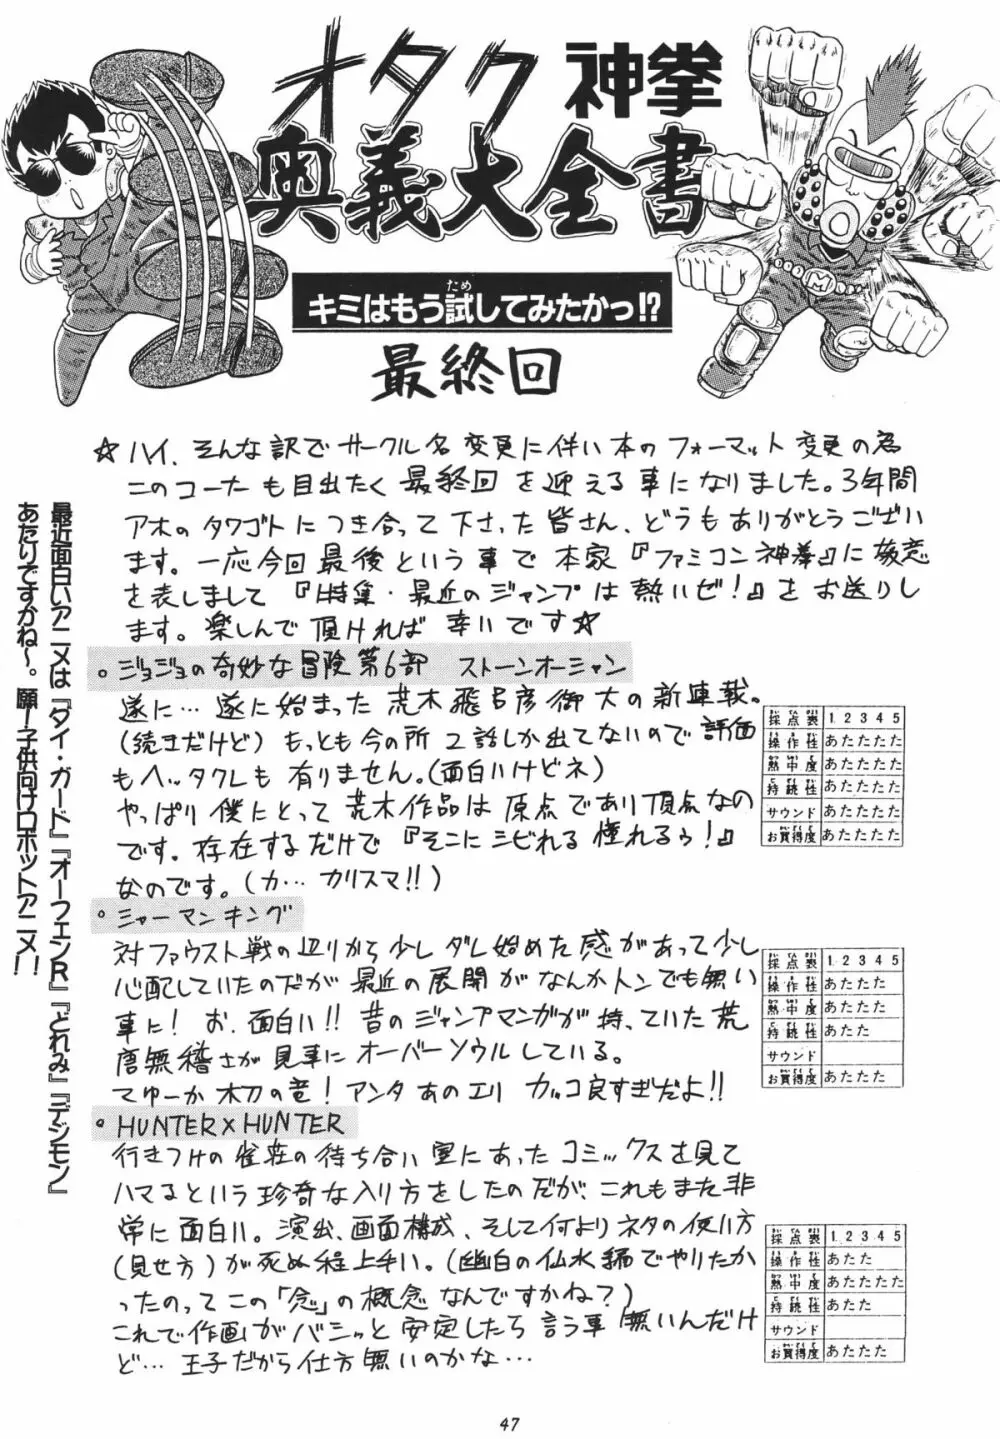 オタク神拳
奥義大全書
キミはもう試してみたかっ!?
ため
最終回
☆ハイ、そんな訳でサークル名変更に伴い本のフォーマット変更の為
このコーナーも目出たく最終回を迎える事になりました。3年間
アホのタワゴトにつき合って下さった皆さん、どうもありがとうござい
ます。一応今回最後という事で本家『ファミコン神拳』に敬意
を表しまして『特集・最近のジャンプは熱いゼ!』をお送りし
ます。楽しんで頂ければ幸いです☆
最近面白いアニメは『ダイ・ガード』『オーフェンR』『どれみ』『デジモン』
あたりですかね〜。願!子供向けロボットアニメ!!
。ジョジョの奇妙な冒険第6部 ストーンオーシャン
遂に…遂に始まった荒木飛呂彦御大の新連載。
(続きだけど)もっとも今の所2話しか出てないので評価
もヘッタクレも有りません。(面白いけどネ)
やっぱり僕にとって荒木作品は原点であり頂点なの
です。存在するだけで『そこにシビれる憧れるゥ!』
なのです。(カ…カリスマ!!)
採点表 1 2 3 4 5
操作性 あたたたた
熱中度 あたたたた
持続性 あたたたた
サウンド あたたたた
お買得度 あたたたた
。シャーマンキング
対ファウスト戦の辺りから少しダレ始めた感があって少し
心配していたのだが最近の展開がなんかトンでも無い
事に!お、面白い!!昔のジャンプマンガが持っていた荒
唐無稽さが見事にオーバーソウルしている。
てゆーか木刀の竜!アンタあのエリ カッコ良すぎだよ!!
採点表 1 2 3 4 5
操作性 あたたた
熱中度 あたたたた
持続性 あたた
サウンド
お買得度 あたたた
。HUNTER×HUNTER
行きつけの雀荘の待ち合い室にあったコミックスを見て
ハマるという珍奇な入り方をしたのだが、これもまた非
常に面白い。演出、画面構成、そして何よりネタの使い方
(見せ方)が死ぬ程上手い。(幽白の仏水編でやりたか
ったのってこの「念」の概念なんですかね?)
これで作画がバシッと安定したら言う事無いんだけ
ど…王子だから仕方無いのかな…
採点表 1 2 3 4 5
操作性 あたた
熱中度 あたたたた
持続性 あたた
サウンド
お買得度 あたたた
47